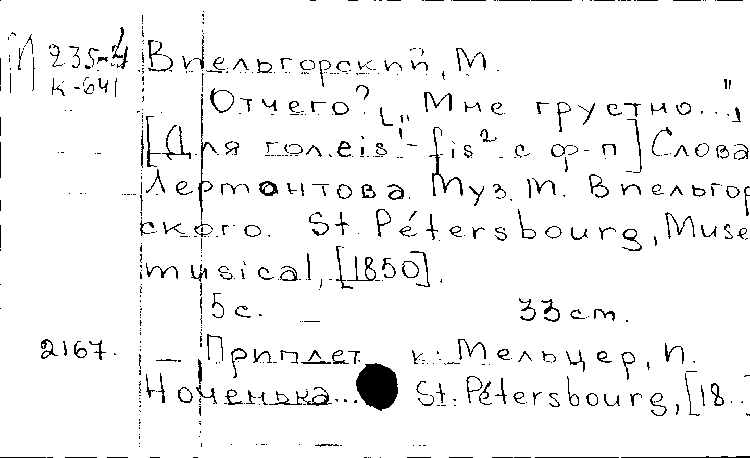 П 235-4 Виельгорский, М.
К-641
Отчего? ["Мне грустно..."]
[Для гол. eis¹-fis² с ф-п] Слова
Лермонтова. Муз. М. Виельгор
ского. St. Pétersbourg, Muse
musical, [1850].
5 с. 33 cm.
2167. — Приплет к: Мельцер, П.
Ноченька... St. Pétersbourg, [18..]